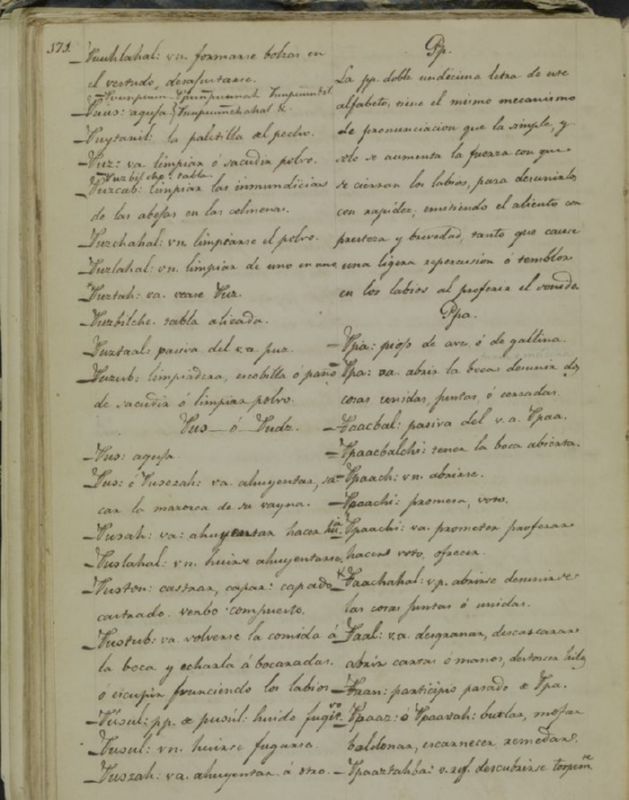 171.
Puchlahal: vn. formarse bolzas en
el vestido, desajustarse.
Puus: aguja
Puytanil: la paletilla del pecho.
Puz: va. limpiar ó sacudir polvo.
Puzbilche. tabla
Puzcab: limpiar las inmundicias
de las abejas en las colmenas.
Puzchahal: vn. limpiarse el polvo.
Puzlahal: vn. limpiar de uno en uno
Puztah: va. vease Puz.
Puzbilche. tabla alisada.
Puztaal: pasiva del v.a. puz.
Puzub: limpiadera, escobilla ó paño
de sacudir ó limpiar polvo.
Pus ó Pudz.
Pus: aguja.
Pus: ó Puszah: va. ahuyentar, sa-
car la mazorca de su vayna.
Pusah: va: ahuyentar hacer
Puslahal: vn. huirse ahuyentarse
Puston: castrar, capar: capado
castrado. verbo compuesto.
Pustub: va. volverse la comida á
la boca y echarla á bocanadas.
ó escupir frunciendo los labios
Púsul: pp. de pusúl: huido
Pusul: vn. huirse fugarse.
Puszah: va. ahuyentar á otro.
Pp.
La pp. doble undécima letra de este
alfabeto, tiene el mismo mecanismo
de pronunciacion que la simple, y
solo se aumenta la fuerza con que
se cierran los labios, para desunirlos
con rapidez, emitiendo el aliento con
presteza y brevedad, tanto que cause
una ligera repercusion ó temblor
en los labios al proferir el sonido
Ppa.
Ppa: piojo de ave, ó de gallina.
Ppa: va. abrir la boca desunir dos
cosas unidas, juntas, ó cerradas.
Paacbal: pasiva del v.a. Ppaa.
Ppaacbalchi: tener la boca abierta.
Ppaach: vn. abrirse.
Ppaachi: promesa, voto.
Ppaachi: va. prometer proferir
hacer voto, ofrecer.
Paachahal: v.p. abrirse desunirse
las cosas juntas ó unidas.
Paal: v.a. desgranar, descascarar
abrir cartas ó manos, destorcer hilo
Paan: participio pasado de Ppa.
Ppaaz: ó Ppaazah: burlar, mofar
baldonar, escarnecer remedar.
Ppaaztahba: v. ref. descubrirse